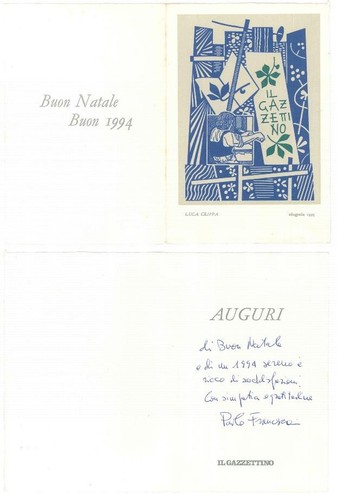 Buon Natale
Buon 1994
IL
GAZ
ZETTI
NO
LUCA CRIPPA
AUGURI
di Buon Natale
e di un 1994 sereno e
ricco di soddisfazioni.
Con simpatia e gratitudine
Paolo Francesconi
IL GAZZETTINO